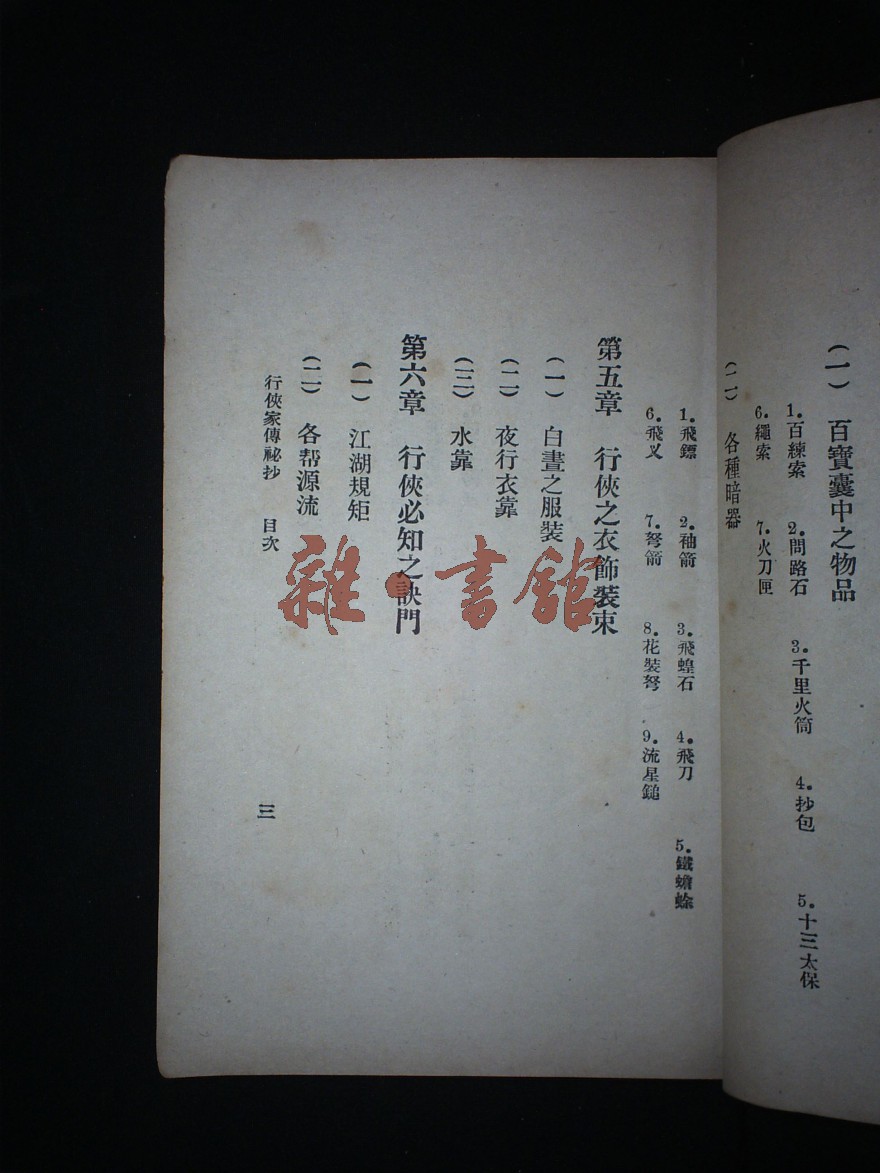 (一) 百寶囊中之物品
1.百練索 2.問路石 3.千里火筒 4.抄包 5.十三太保
6.繩索 7.火刀匣
(二) 各種暗器
1.飛鏢 2.袖箭 3.飛蝗石 4.飛刀 5.鐵蟾蜍
6.飛叉 7.弩箭 8.花裝弩 9.流星鎚
第五章 行俠之衣飾裝束
(一) 白晝之服裝
(二) 夜行衣靠
(三) 水靠
第六章 行俠必知之訣門
(一) 江湖規矩
(二) 各帮源流
行俠家傳祕抄 目次
三
雜·書館